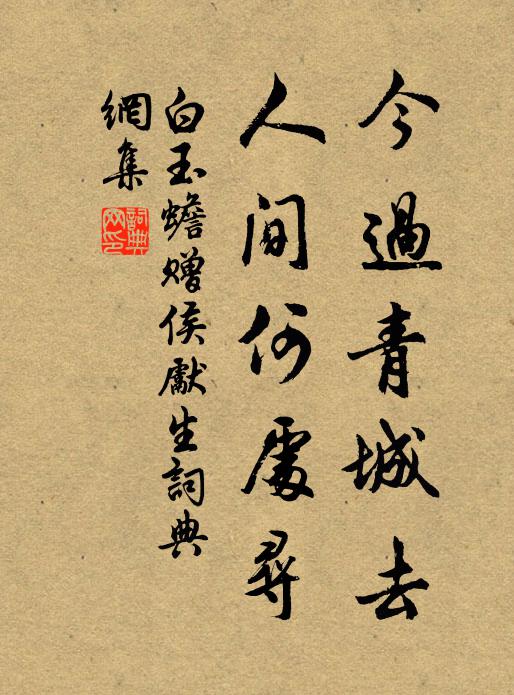 今過青城去
人間何處尋
白玉蟾贈侯獻生詞典
網集
詞典
网印